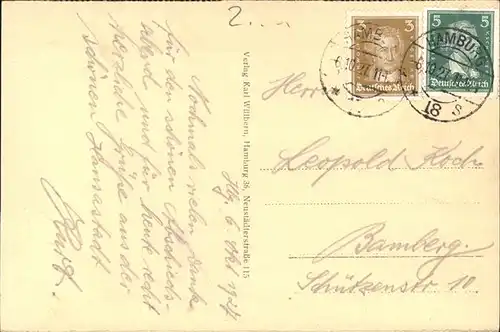 2.
Hbg. 6. Okt. 1927
Nochmals vielen Dank
für den schönen Abschieds-
abend und für heute recht
herzliche Grüße aus der
schönen Hansastadt
Kurt.
Verlag Karl Willhern, Hamburg 36, Neustädterstraße 115
3 3
Deutsches Reich
5 5
Deutsches Reich
HAMB
6.10.27.
HAMBURG
6.10.27.
18
Herrn
Leopold Koch
Bamberg.
Schützenstr 10